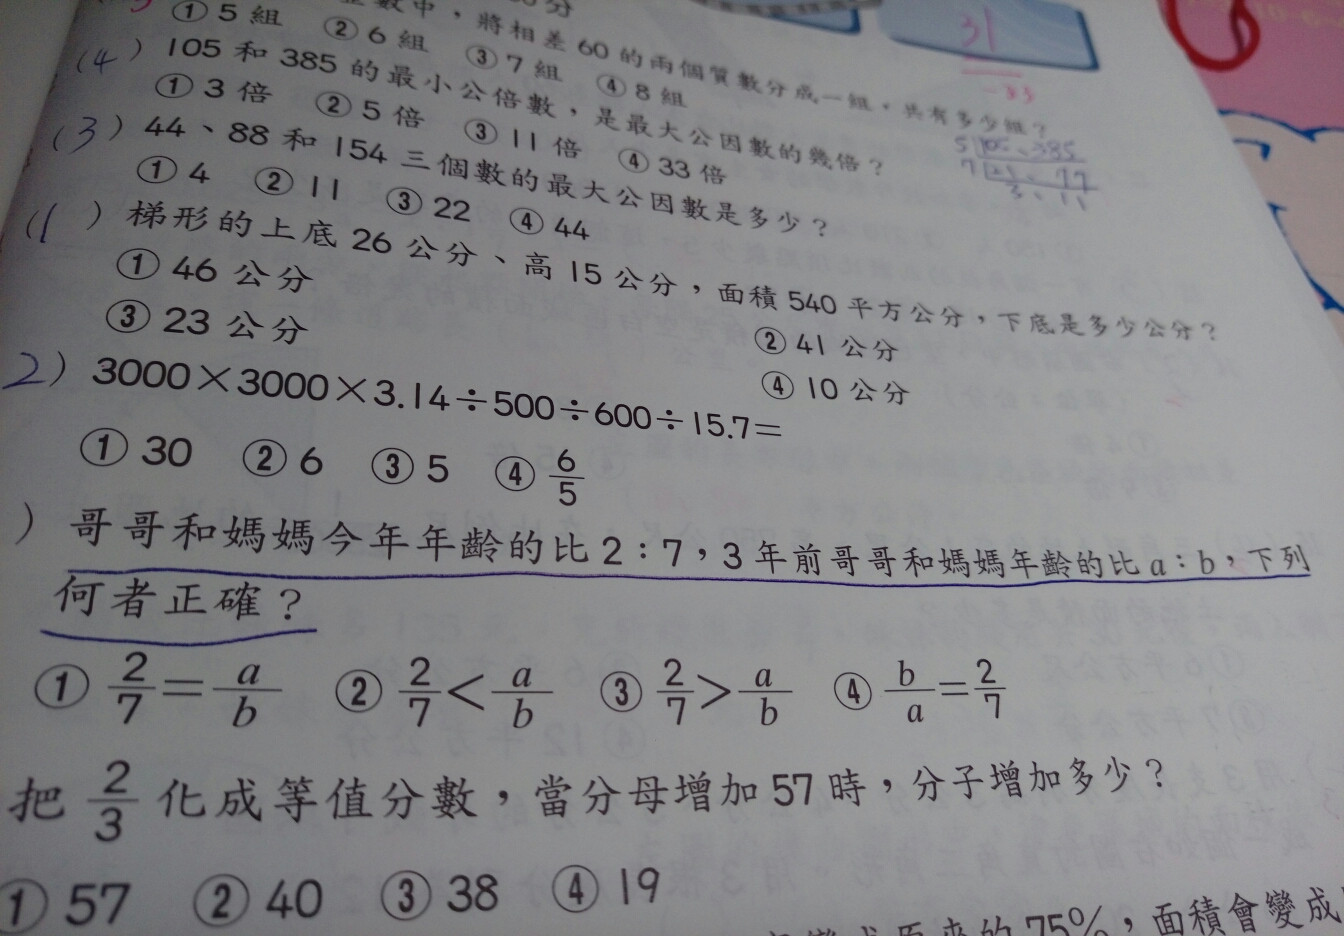 整數中，將相差60的兩個質數分成一組，共有多少組？
① 5組 ② 6組 ③ 7組 ④ 8組
31
(4) 105和385的最小公倍數，是最大公因數的幾倍？
① 3倍 ② 5倍 ③ 11倍 ④ 33倍
5 105、385
7 21、77
3、11
(3) 44、88和154三個數的最大公因數是多少？
① 4 ② 11 ③ 22 ④ 44
(1) 梯形的上底26公分、高15公分，面積540平方公分，下底是多少公分？
① 46公分 ② 41公分
③ 23公分 ④ 10公分
2) 3000×3000×3.14÷500÷600÷15.7=
① 30 ② 6 ③ 5 ④ 6/5
) 哥哥和媽媽今年年齡的比2：7，3年前哥哥和媽媽年齡的比a：b，下列
何者正確？
① 2/7=a/b ② 2/7<a/b ③ 2/7>a/b ④ b/a=2/7
把2/3化成等值分數，當分母增加57時，分子增加多少？
① 57 ② 40 ③ 38 ④ 19
變成原來的75%，面積會變成